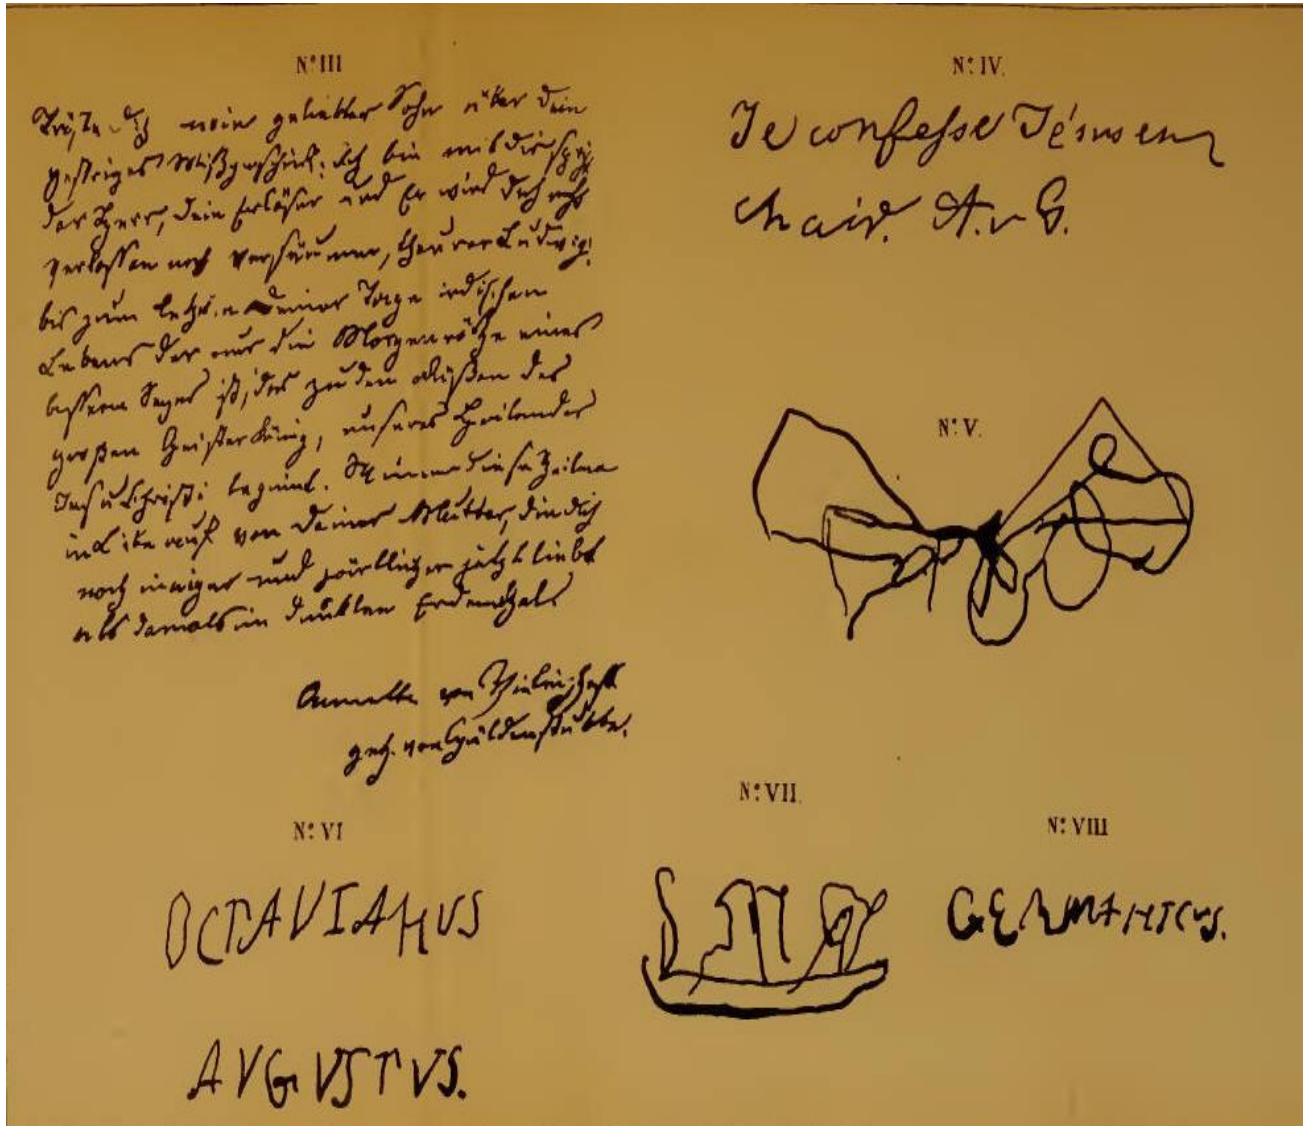 Nº III
Tröste dich mein geliebter Sohn über dein
gestriges Mißgeschick. Ich bin mit dir spricht
der Herr, dein Erlöser und Er wird dich nicht
verlassen noch versäumen, theurer Ludwig!
bis zum letzten deiner Tage irdischen
Lebens der nur die Morgenröthe eines
bessern Seyns ist, das zu den Füßen des
großen Geisterkönig, unseres Heilandes
Jesu Christi beginnt. Nimm diese Zeilen
in Liebe auf von deiner Mutter, die dich
noch inniger und zärtlicher jetzt liebt
als damals im dunklen Erdenthal.
Annette von
geb. von Güldenstubbe.
Nº IV.
Je confesse Jésus en
chair. A. v G.
Nº V.
Nº VI
OCTAVIANUS
AVGVSTVS.
Nº VII.
Nº VIII
GERMANICVS.